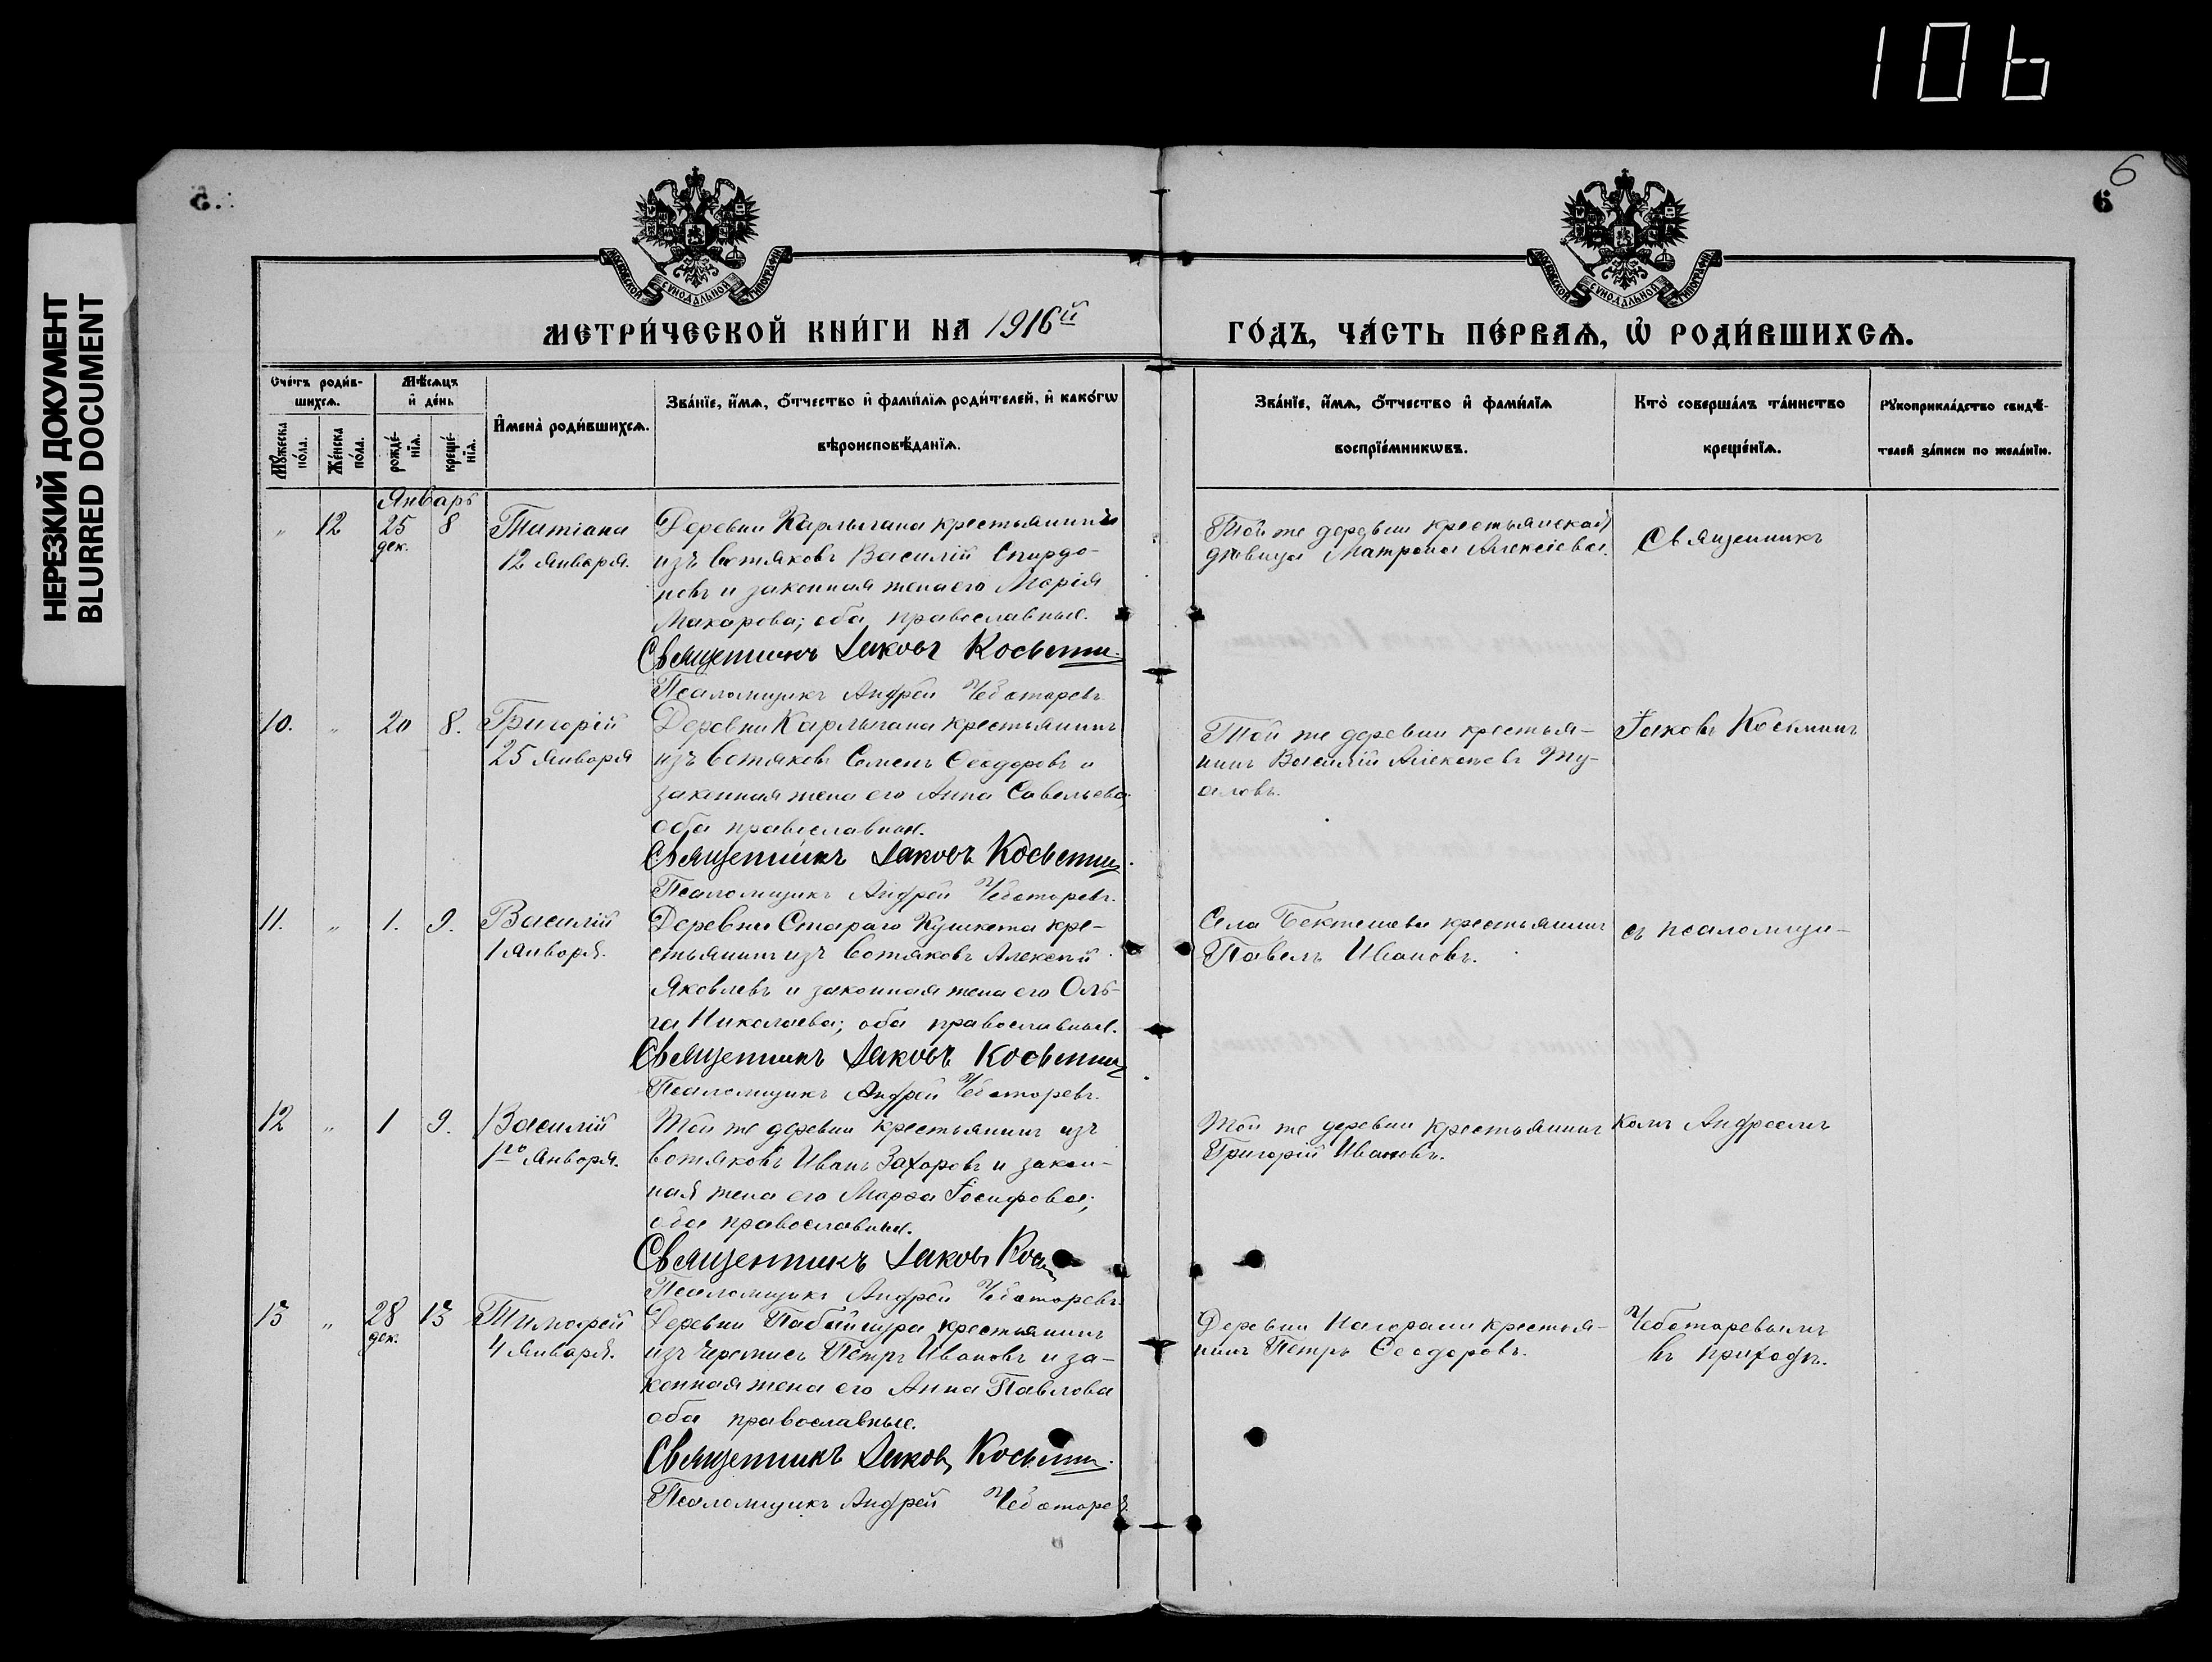 106
НЕРЕЗКИЙ ДОКУМЕНТ
BLURRED DOCUMENT
6
6
МОСКОВСКОЙ СѴНОДАЛЬНОЙ ТИПОГРАФІИ
МОСКОВСКОЙ СѴНОДАЛЬНОЙ ТИПОГРАФІИ
МЕТРИ́ЧЕСКОЙ КНИ́ГИ НА 1916й
ГО́ДЪ, ЧА́СТЬ ПЕ́РВАѦ, Ѡ РОДИ́ВШИХСѦ.
Сче́тъ роди́в-
шихсѧ.
Мꙋ́жеска
по́ла.
Же́нска
по́ла.
Мѣ́сѧцъ
и҆ де́нь
рожде́-
нїѧ.
креще́-
нїѧ.
И҆мена̀ роди́вшихсѧ.
Зва́нїе, и҆́мѧ, ѻ҆́тчество и҆ фами́лїѧ роди́телей, и҆ како́гѡ
вѣроисповѣ́данїѧ.
Зва́нїе, и҆́мѧ, ѻ҆́тчество и҆ фами́лїѧ
воспрїе́мникѡвъ.
Кто̀ соверша́лъ та́инство
креще́нїѧ.
Рꙋкоприкла́дство свидѣ́-
телей за́писи по жела́нїю.
Январь
" 12 25 8
дек.
Татіана
12 января.
Деревни Карлыгана крестьянинъ
изъ вотяковъ Василій Спирдо-
новъ и законная жена его Марія
Макарова; оба православные.
Священникъ Іаковъ Косьмин.
Псаломщикъ Андрей Чеботаревъ.
Той же деревни крестьянская
дѣвица Матрона Алексіева.
Священникъ
10. " 20 8. Григорій
25 января
Деревни Карлыгана крестьянинъ
изъ вотяковъ Семенъ Ѳеодоровъ и
законная жена его Анна Савельева
оба православные.
Священникъ Іаковъ Косьмин
Псаломщикъ Андрей Чеботаревъ.
Той же деревни крестья-
нинъ Василій Алексѣевъ
Іаковъ Косьминъ
11. " 1. 9. Василій
1 января.
Деревни Стараго Кушкета кре-
стьянинъ изъ вотяковъ Алексѣй
Яковлевъ и законная жена его Оль-
га Николаева; оба православные.
Священникъ Іаковъ Косьмин
Псаломщикъ Андрей Чеботаревъ.
Села Бектешева крестьянинъ
Павелъ Ивановъ.
съ псаломщи-
12 " 1 9. Василій
1го Января.
Той же деревни крестьянинъ изъ
вотяковъ Иванъ Захаровъ и закон-
ная жена его Марѳа Іосифова;
оба православные.
Священникъ Іаковъ
Псаломщикъ Андрей Чеботаревъ.
Той же деревни крестьянинъ
Григорій Ивановъ.
комъ Андреемъ
13 " 28 13 Тимофей
дек.
4 Января.
Деревни крестьянинъ
изъ черемисъ Петръ Ивановъ и за-
конная жена его Анна Павлова
оба православные.
Священникъ Іаковъ Косьмин.
Псаломщикъ Андрей Чеботарев.
Деревни крестья-
нинъ Петръ Ѳеодоровъ.
Чеботаревымъ
въ приходѣ.